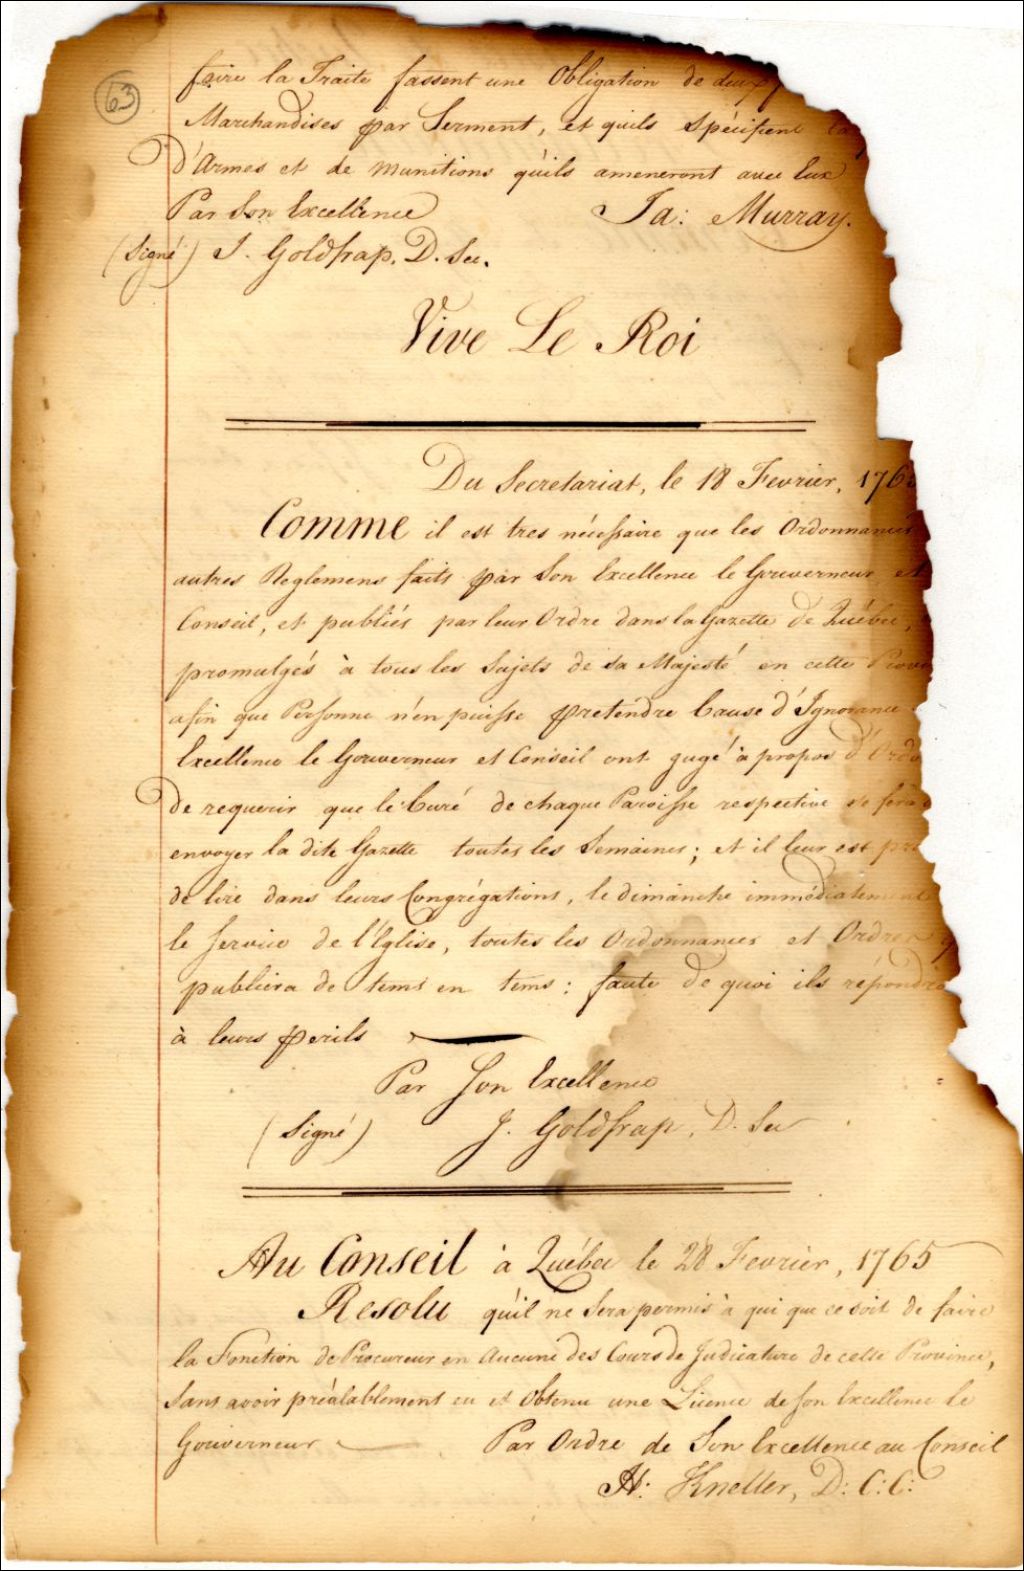 63
faire la Traite fassent une Obligation de deux
Marchandises par Serment, et quils Spécifient la
D'Armes et de Munitions qu'ils ameneront avec Eux
Par Son Excellence Ja: Murray.
(Signé) J. Goldfrap, D. Sec.
Vive Le Roi
Du Secretariat, le 18 Fevrier, 1765
Comme il est tres nécessaire que les Ordonnances
autres Reglemens faits par Son Excellence le Gouverneur et
Conseil, et publiés par leur Ordre dans la Gazette de Québec,
promulgés à tous les Sujets de sa Majesté en cette Prov
afin que Personne n'en puisse pretendre Cause d'Ignorance
Excellence le Gouverneur et Conseil ont jugé à propos d'Ordo
De requerir que le Curé de chaque Paroisse respective se fera
envoyer la dite Gazette toutes les Semaines; et il leur est
de lire dans leurs Congrégations, le dimanche immédiatement
le Service de l'Eglise, toutes les Ordonnances et Ordres
publiera de tems en tems: faute de quoi ils répondro
à leurs perils
Par Son Excellence
(Signé) J. Goldfrap, D. Sec
Au Conseil à Québec le 28 Fevrier, 1765
Resolu qu'il ne Sera permis à qui que ce soit de faire
la Fonction de Procureur en Aucune des Cours de Judicature de cette Province,
Sans avoir préalablement eu et Obtenu une Licence de Son Excellence le
Gouverneur Par Ordre de Son Excellence au Conseil
H: Kneller, D: C: C: